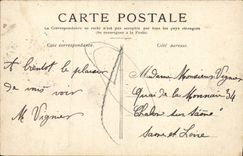 CARTE POSTALE
La Correspondance au recto n'est pas acceptée par tous les pays étrangers
(Se renseigner à la Poste)
Côté correspondance.
Côté adresse.
A bientôt le plaisir
de vous voir
M. Vognier
Madame Monsieur Vognier
Quai de la Monnaie 34
Chalon sur Saône
Saone et Loire